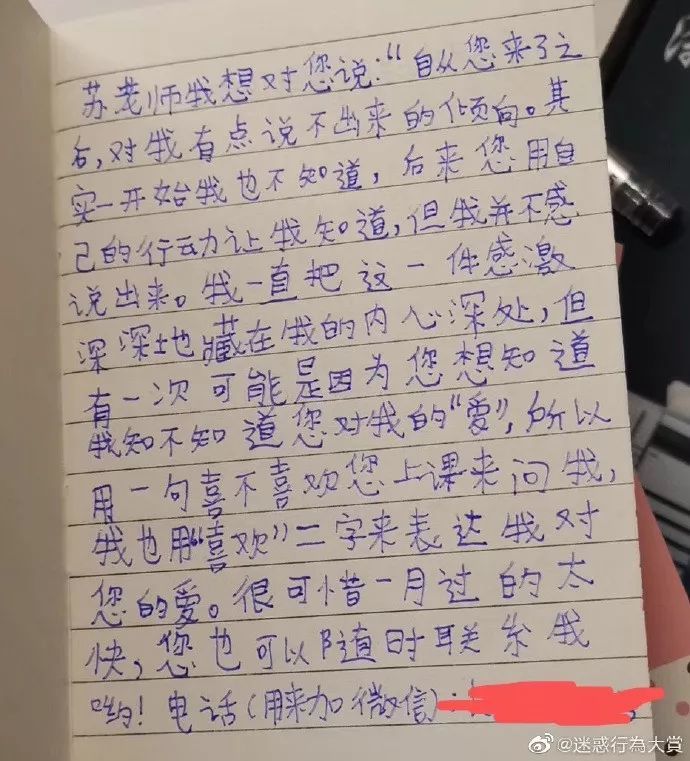 苏老师我想对您说:“自从您来了之
后,对我有点说不出来的倾向。其
实一开始我也不知道,后来您用自
己的行动让我知道,但我并不感
说出来。我一直把这一件感激
深深地藏在我的内心深处,但
有一次可能是因为您想知道
我知不知道您对我的“爱”,所以
用一句喜不喜欢您上课来问我,
我也用“喜欢”二字来表达我对
您的爱。很可惜一月过的太
快,您也可以随时联系我
哟!电话(用来加微信):
@迷惑行為大賞